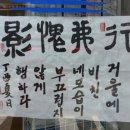 行弗愧影
거울에
비친
네모습이
부끄럽지
않게
행하라
丁酉夏日